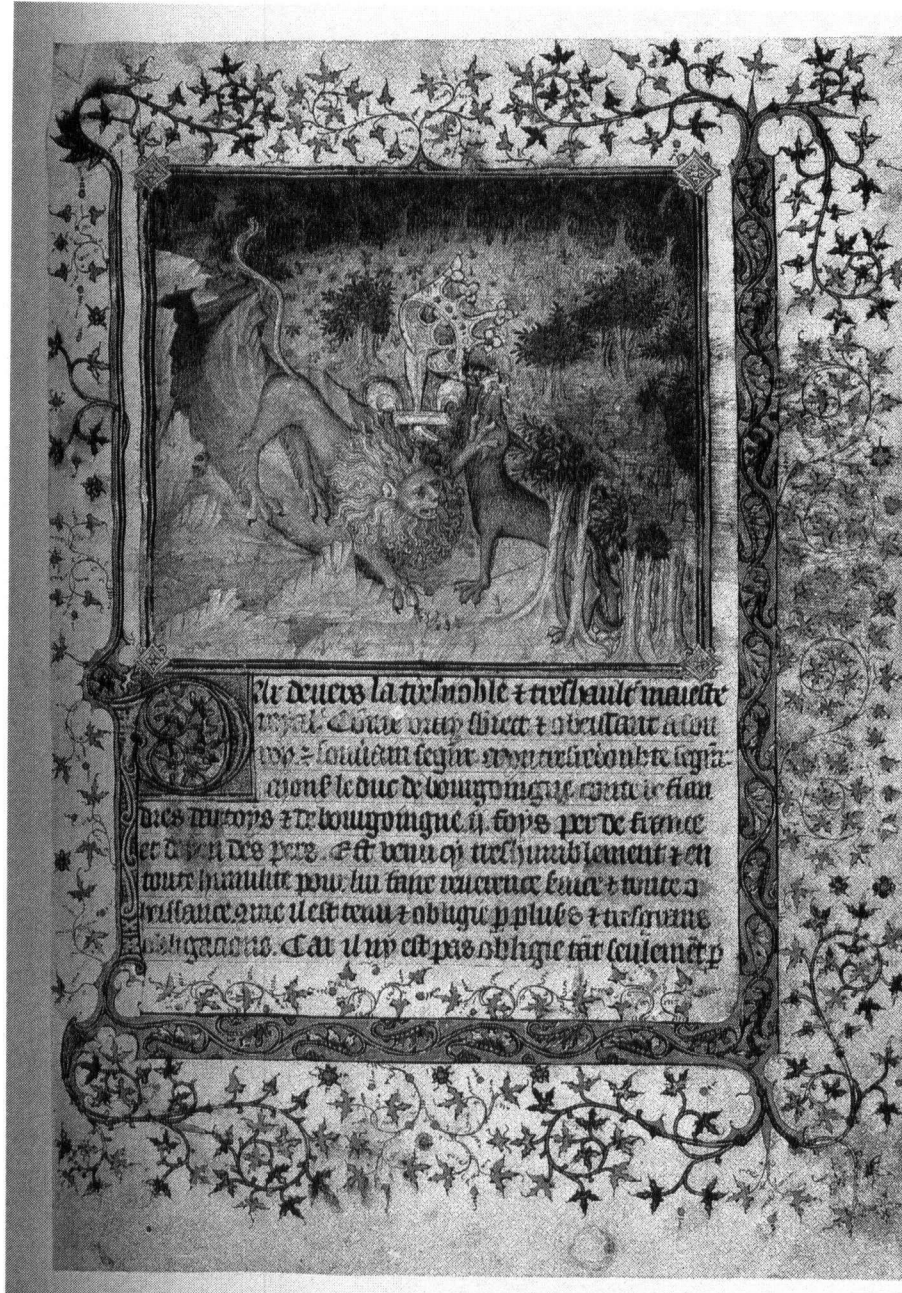 Par deuers la tresnoble ⁊ treshaulte maieste
royal. Come vray subiect ⁊ obeissant a son
roy ⁊ souuerain segñr mon tresredoubte segñr
mons̄ le duc de bourgoingne conte de flan
dres dartoys ⁊ de bourgoingne .ij. foys per de france
et doyen des pers. Est venu cy treshumblement ⁊ en
toute humilite pour lui faire reuerence ⁊ toute o
beissance. q̄me il est tenu ⁊ obligie p̄ plus̄s ⁊ tresgrans
obligacions. Car il ny est pas obligie tāt seulemēt p̄